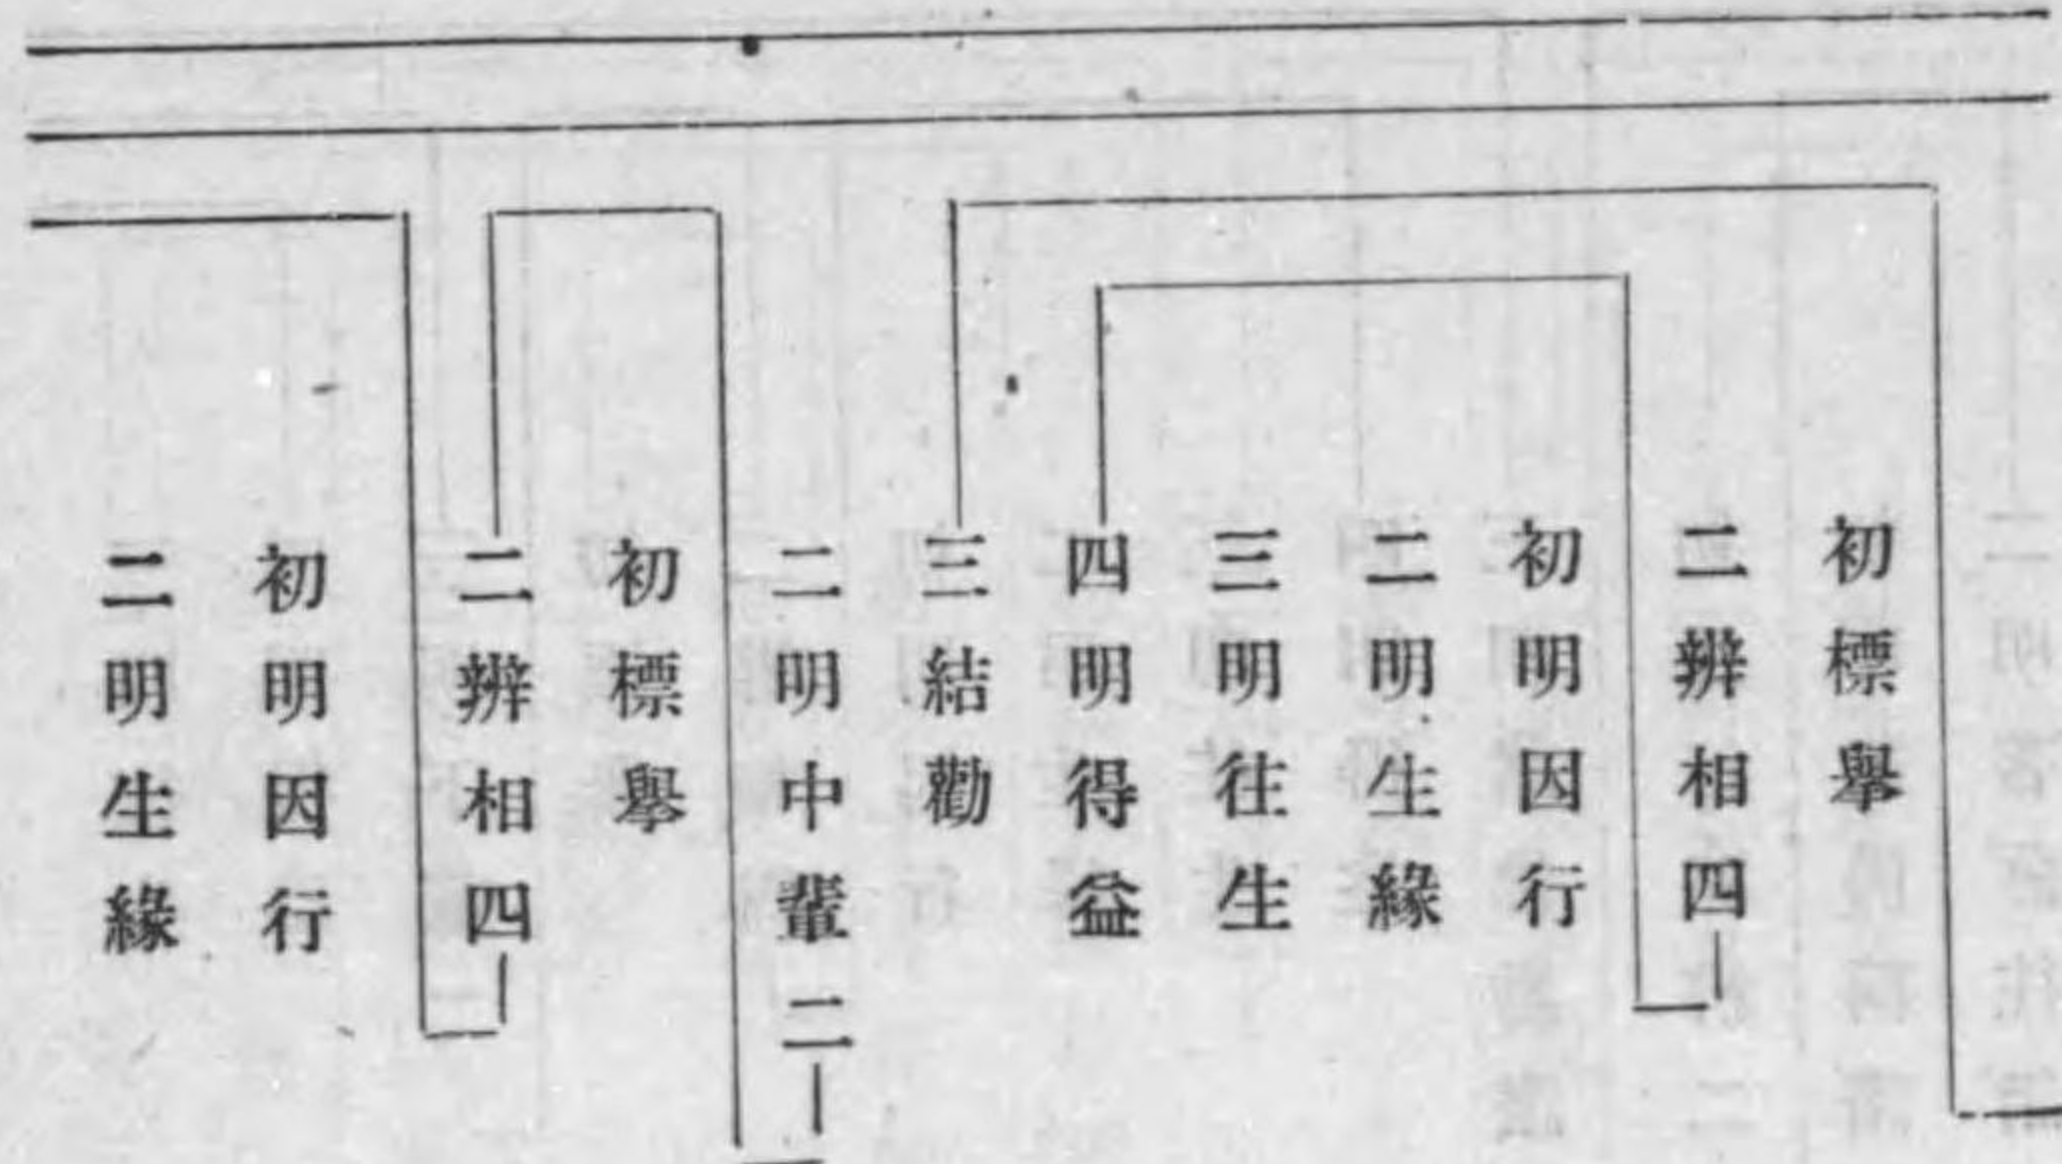 初標擧
二辨相四
初明因行
二明生緣
三明往生
四明得益
三結勸
二明中輩二
初標擧
二辨相四
初明因行
二明生緣